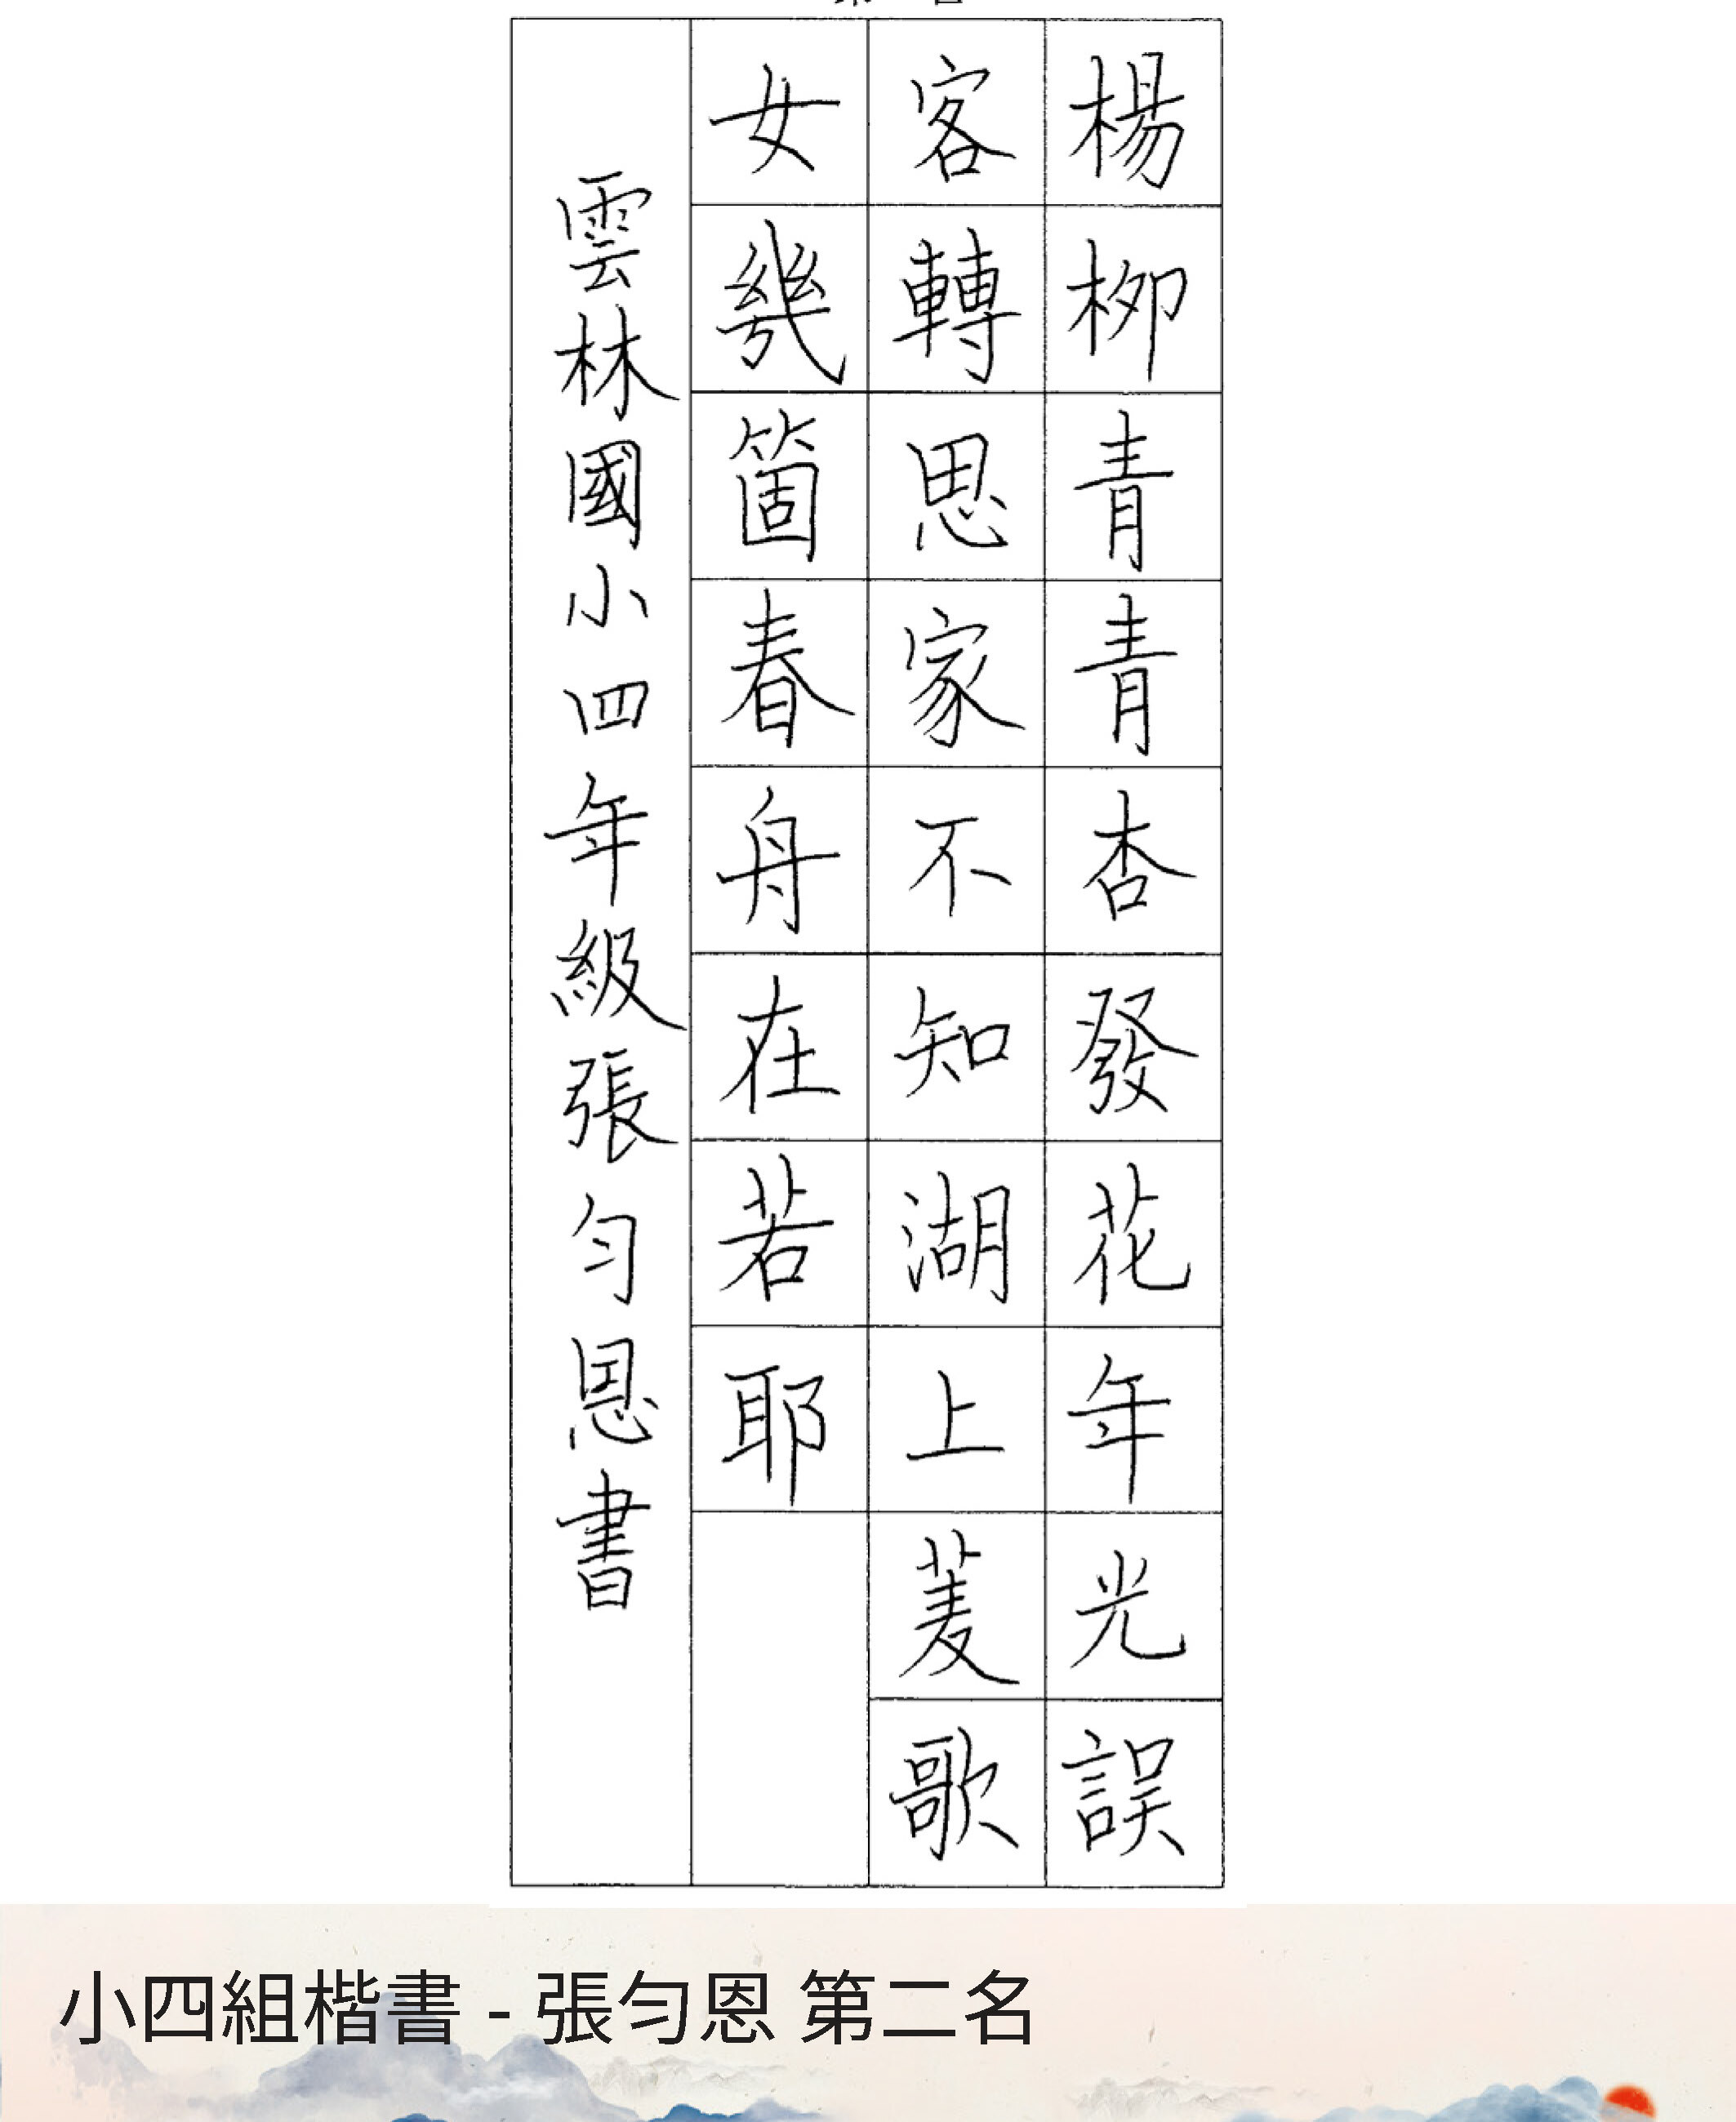 楊柳青青杏發花年光誤
客轉思家不知湖上菱歌
女幾箇春舟在若耶
雲林國小四年級張勻恩書
小四組楷書 - 張勻恩 第二名